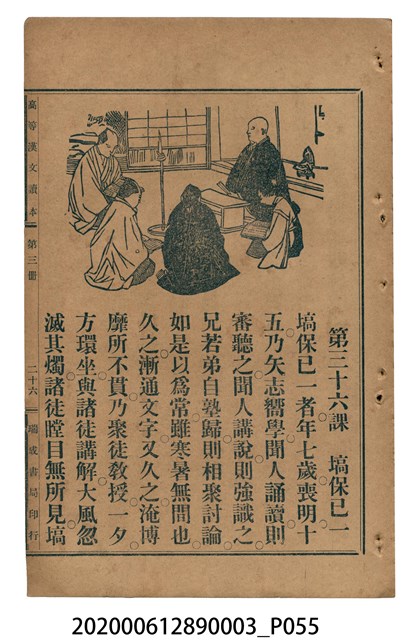 第三十六課　塙保己一
塙保已一者年七歲喪明十
五乃矢志嚮學聞人誦讀則
審聽之聞人講說則強識之
兄若弟自塾歸則相聚討論
如是以爲常雖寒暑無間也
久之漸通文字又久之淹博
靡所不貫乃聚徒敎授一夕
方環坐與諸徒講解大風忽
滅其燭諸徒瞠目無所見塙
高等漢文讀本　第三冊　二十六　瑞成書局印行
202000612890003_P055